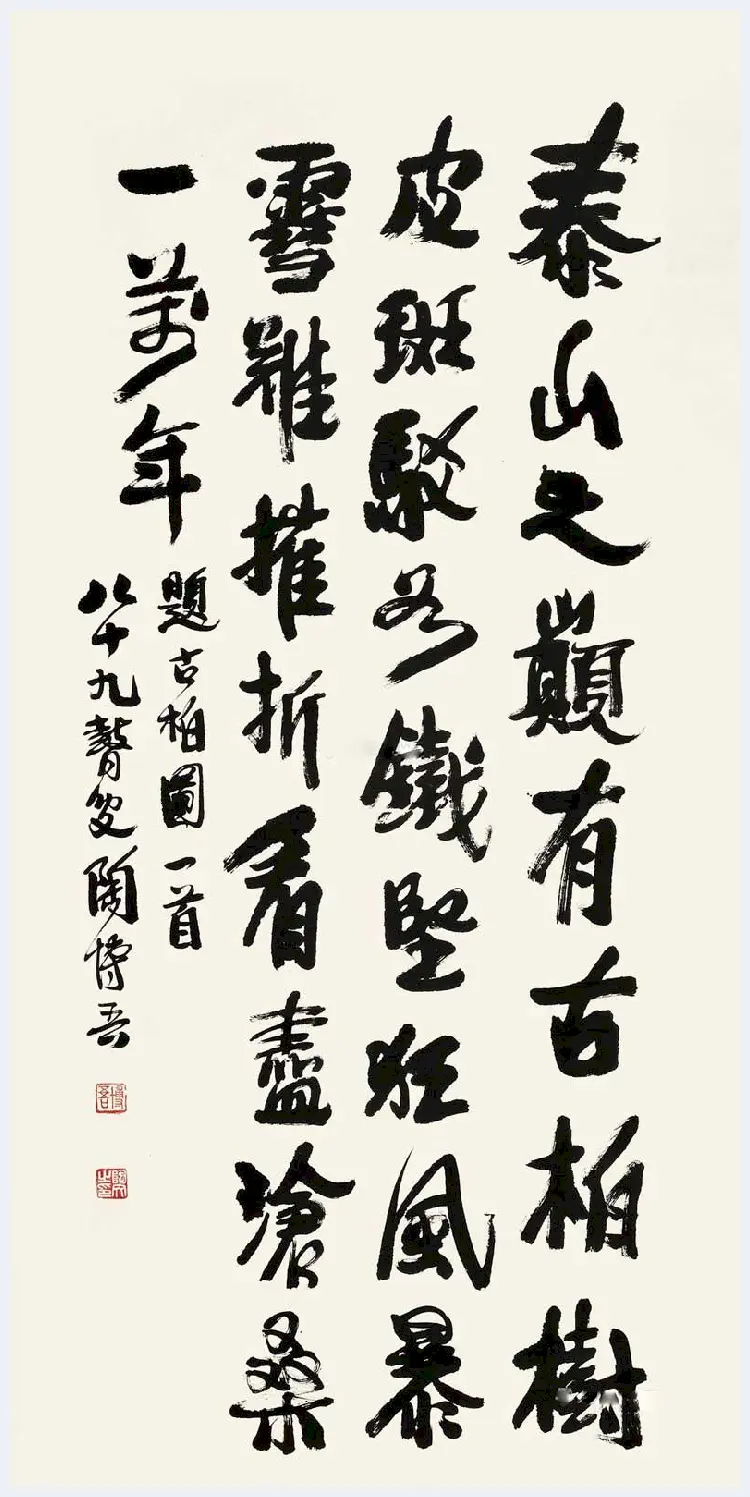 泰山之巔有古柏樹
皮斑駁如鐵堅狂風暴
雪難摧折看盡滄桑
一萬年
題古柏圖一首
八十九瞽叟陶博吾
博吾